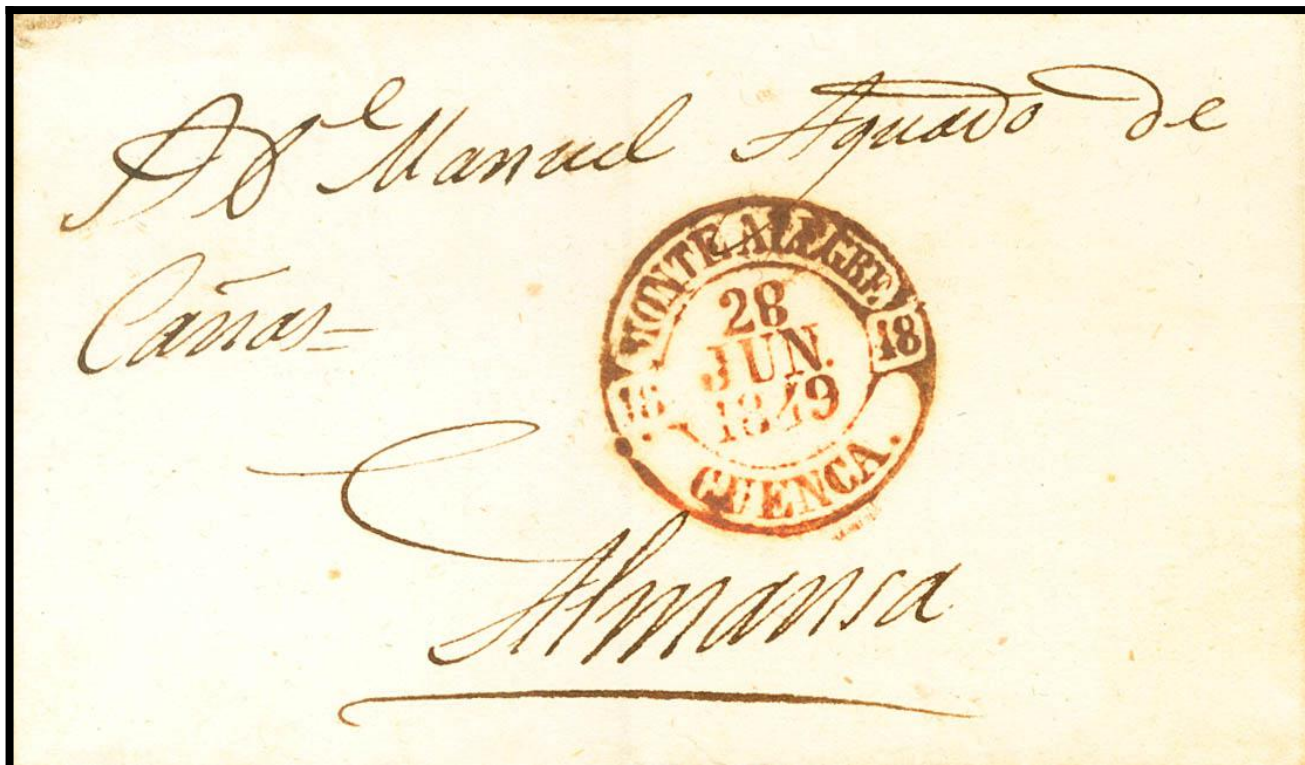 A Dn Manuel Aguado de
Cañas=
MONTE ALEGRE.
18
28
JUN.
1849
18
CUENCA.
Almansa